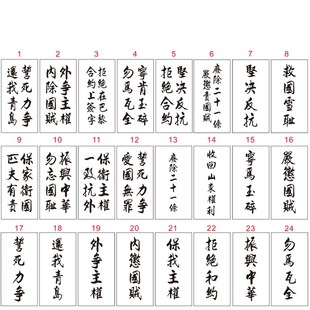 1 2 3 4 5 6 7 8
誓死力爭
還我青島
外爭主權
內除國賊
拒絕在巴黎
合約上簽字
寧肯玉碎
勿為瓦全
堅決反抗
拒絕和約
廢除二十一條
嚴懲賣國賊
堅決反抗
救國雪恥
9 10 11 12 13 14 15 16
保家衛國
匹夫有責
振興中華
勿忘國恥
外爭主權
一致抗外
誓死力爭
愛國無罪
廢除二十一條
收回山東權利
寧為玉碎
嚴懲國賊
17 18 19 20 21 22 23 24
誓死力爭
還我青島
外爭主權
內懲國賊
保我主權
拒絕和約
振興中華
勿為瓦全